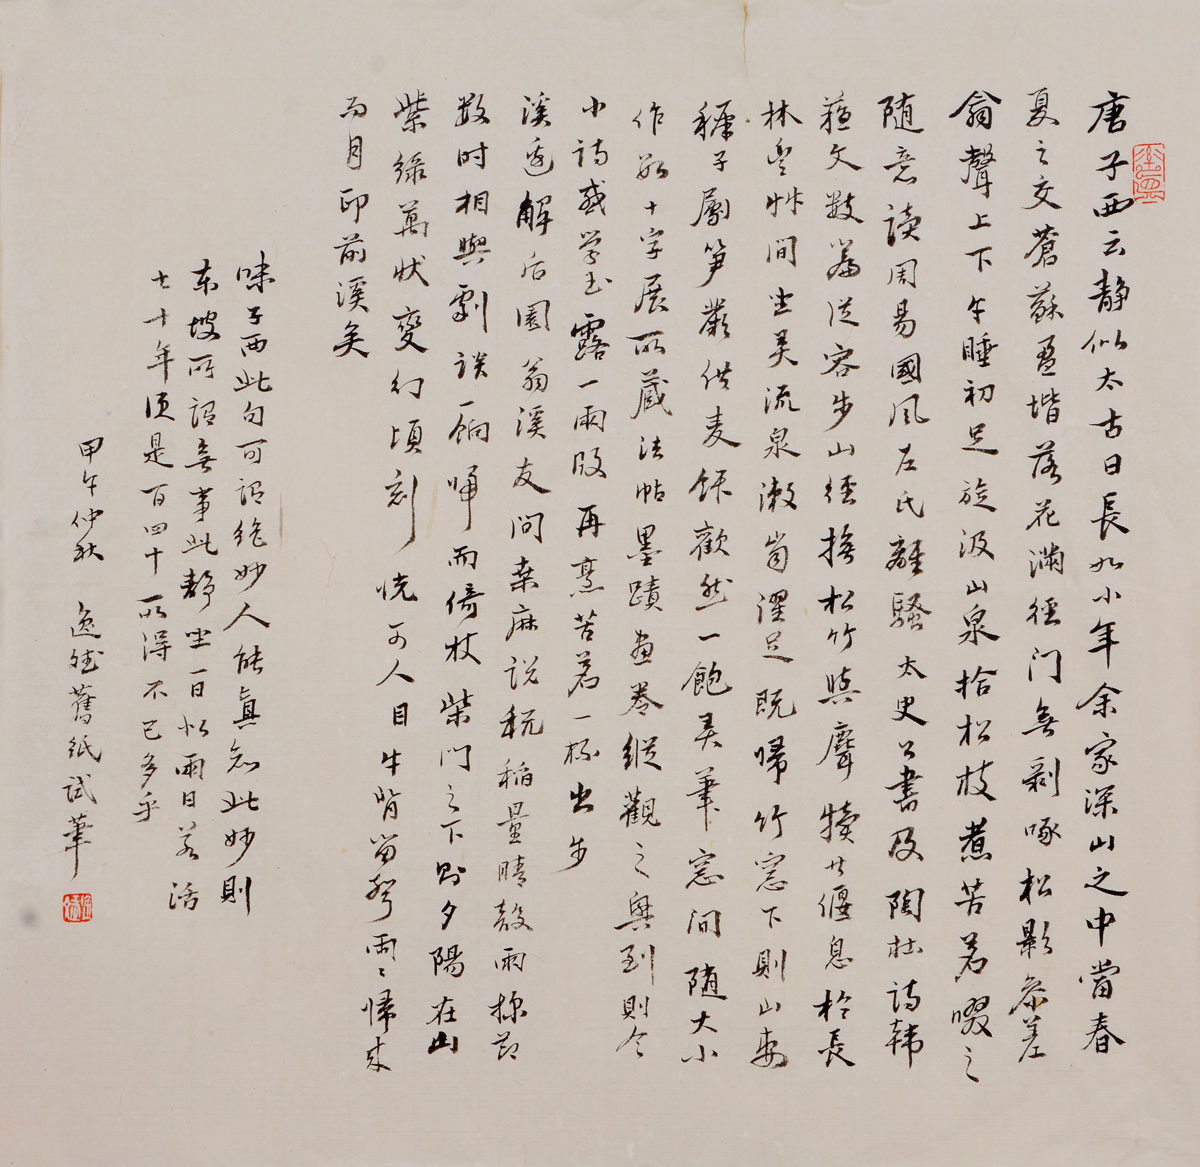 唐子西云静似太古日長如小年余家深山之中當春
夏之交蒼蘇盈堦落花滿徑门無剥啄松影參差
禽聲上下午睡初足旋汲山泉拾松枝煮苦茗啜之
随意读周易國风左氏離騷太史公書及陶杜詩韩
蘇文数篇従容步山徑撫松竹與麛犢共偃息於長
林豐艸间坐弄流泉漱齒濯足既歸竹窓下則山妻
稚子屬笋蕨供麦飯歡然一飽弄筆窓间随大小
作數十字展所藏法帖墨蹟画卷縱觀之興到則吟
小詩或学玉露一兩段再烹苦茗一杯出步
溪邊解后園翁溪友问桑麻说秔稻量晴较雨探节
数时相與劇谈一餉歸而倚杖柴门之下則夕陽在山
紫绿萬状變幻頃刻恍可人目牛背笛聲兩〻歸来
而月印前溪矣
味子西此句可谓绝妙人能真知此妙則
东坡所谓無事此静坐一日似兩日若活
七十年便是百四十所得不已多乎
甲午仲秋 逸㻑舊纸试筆